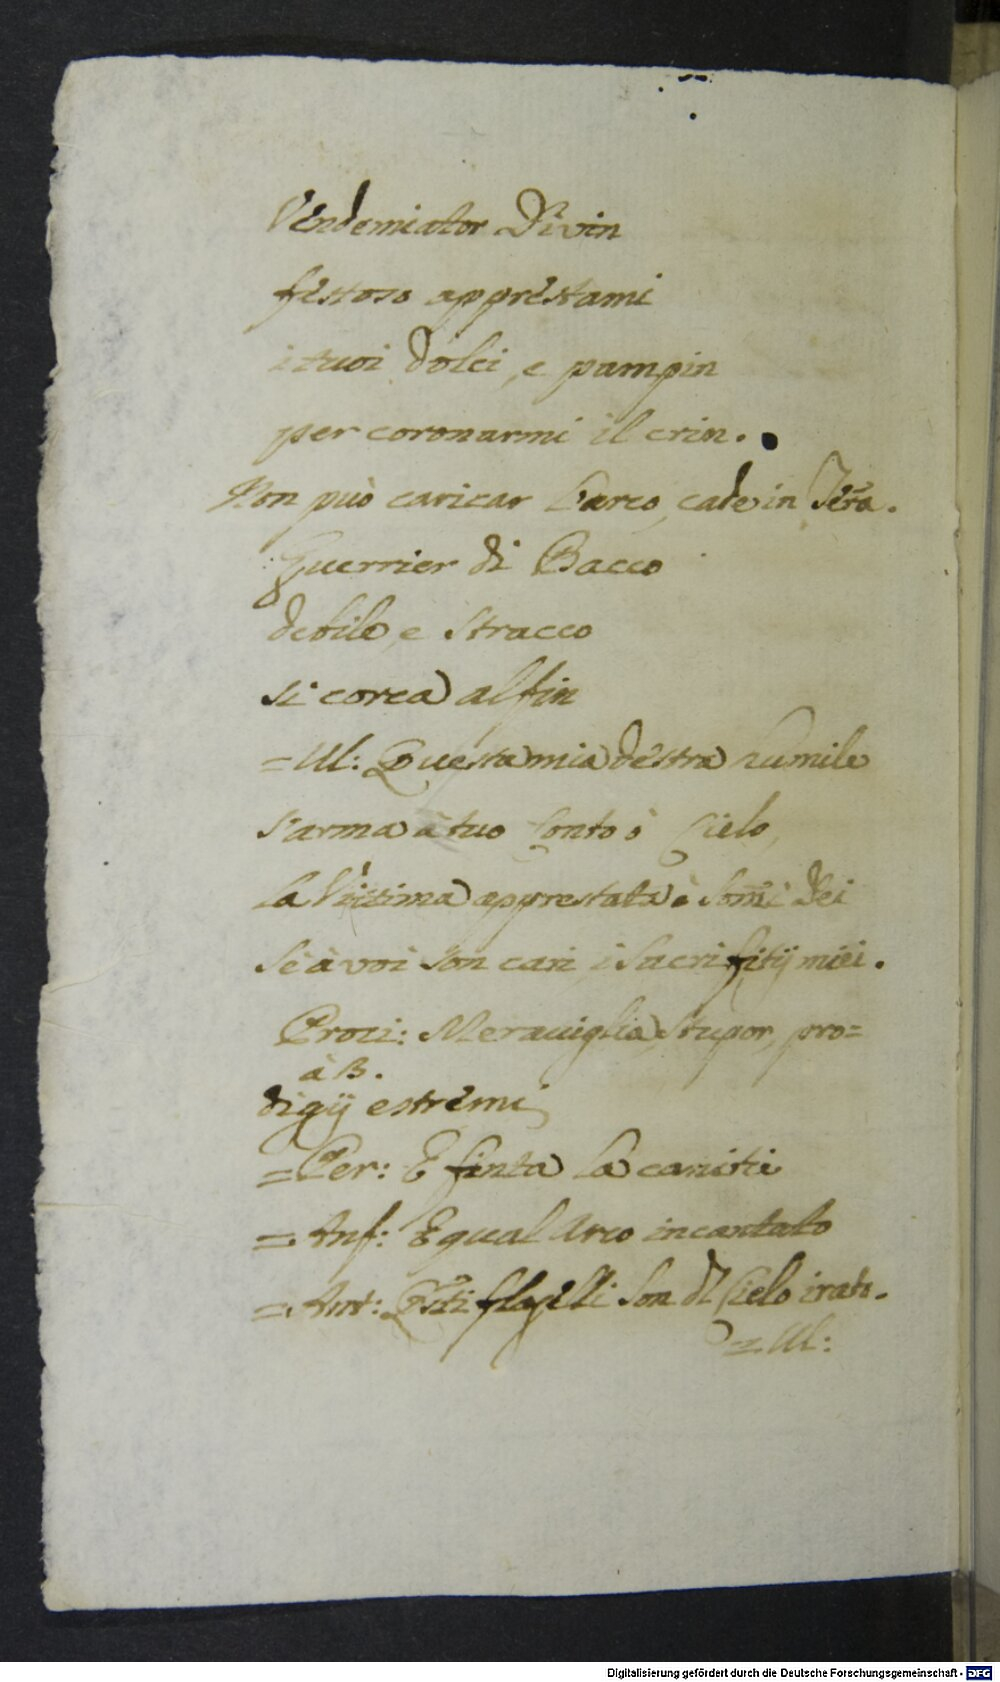 Vendemiator Divin
festoso apprestami
i tuoi dolci, e pampin
per coronarmi il crin.
Non può caricar l'arco, cade in Terra.
Guerrier di Bacco
debile, e stracco
si corca al fin
= Ul: Questa mia destra humile
s'arma à tuo conto ò Cielo,
la Vittima apprestata è Som̃i Dei
Se à voi son cari i sacrifitij miei.
Proci: Meraviglia, stupor, pro=
à 3.
digij estremi,
= Per: E finta la canitie
= Anf: E qual Arco incantato
= Ant: Q̃sti flagelli son dl Cielo irato.
= Ul:
Digitalisierung gefördert durch die Deutsche Forschungsgemeinschaft - DFG